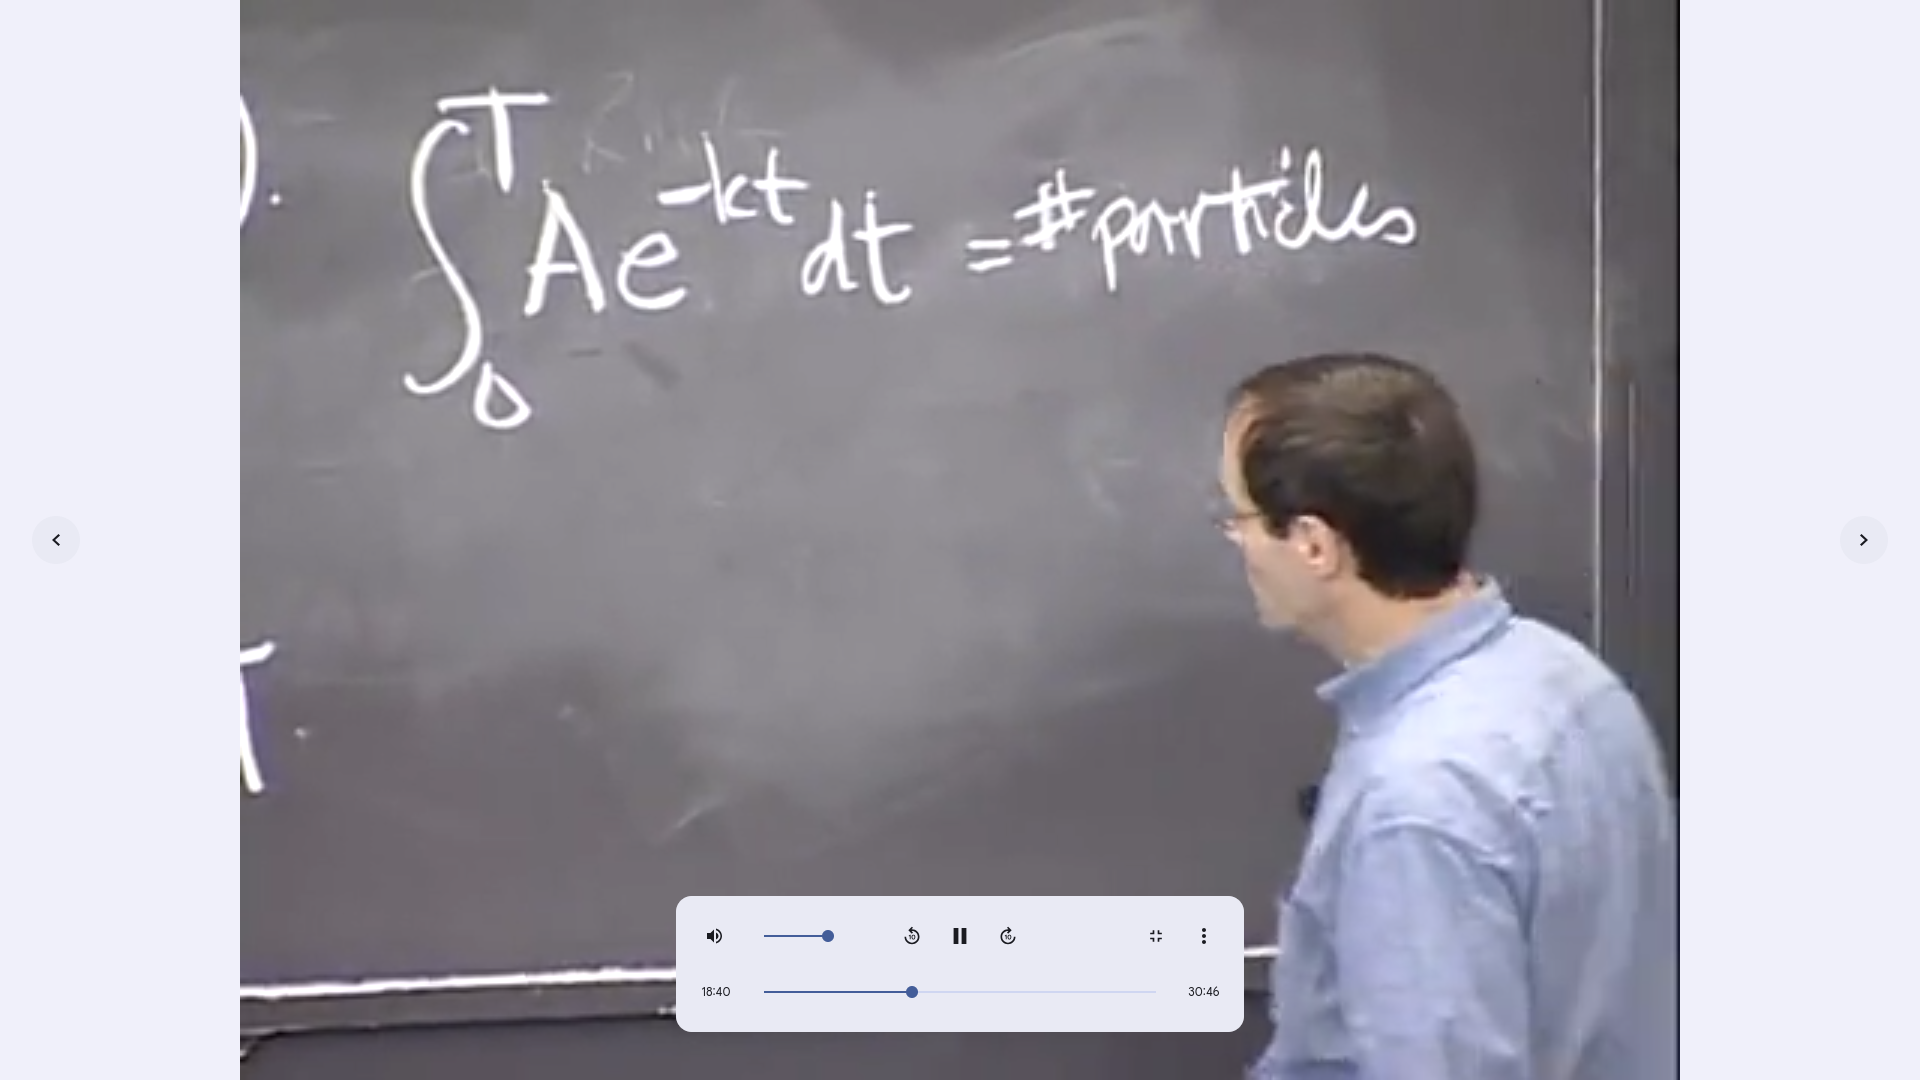 ). ∫₀ᵀ Ae^(-kt) dt = #particles
T
18:40 30:46